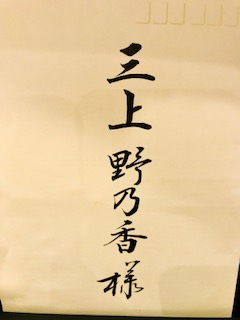 三上 野乃香様